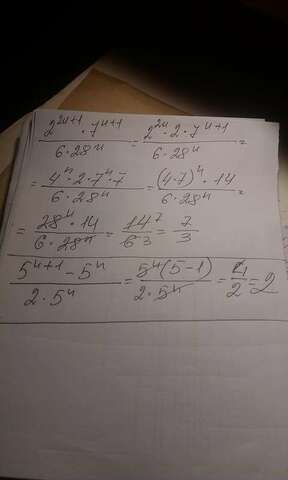 (2^(2n+1) · 7^(n+1)) / (6 · 28^n) = (2^(2n) · 2 · 7^(n+1)) / (6 · 28^n) =
= (4^n · 2 · 7^n · 7) / (6 · 28^n) = ((4·7)^n · 14) / (6 · 28^n) =
= (28^n · 14) / (6 · 28^n) = 14 7 / 6 3 = 7/3
(5^(n+1) - 5^n) / (2 · 5^n) = (5^n (5-1)) / (2 · 5^n) = 4/2 = 2